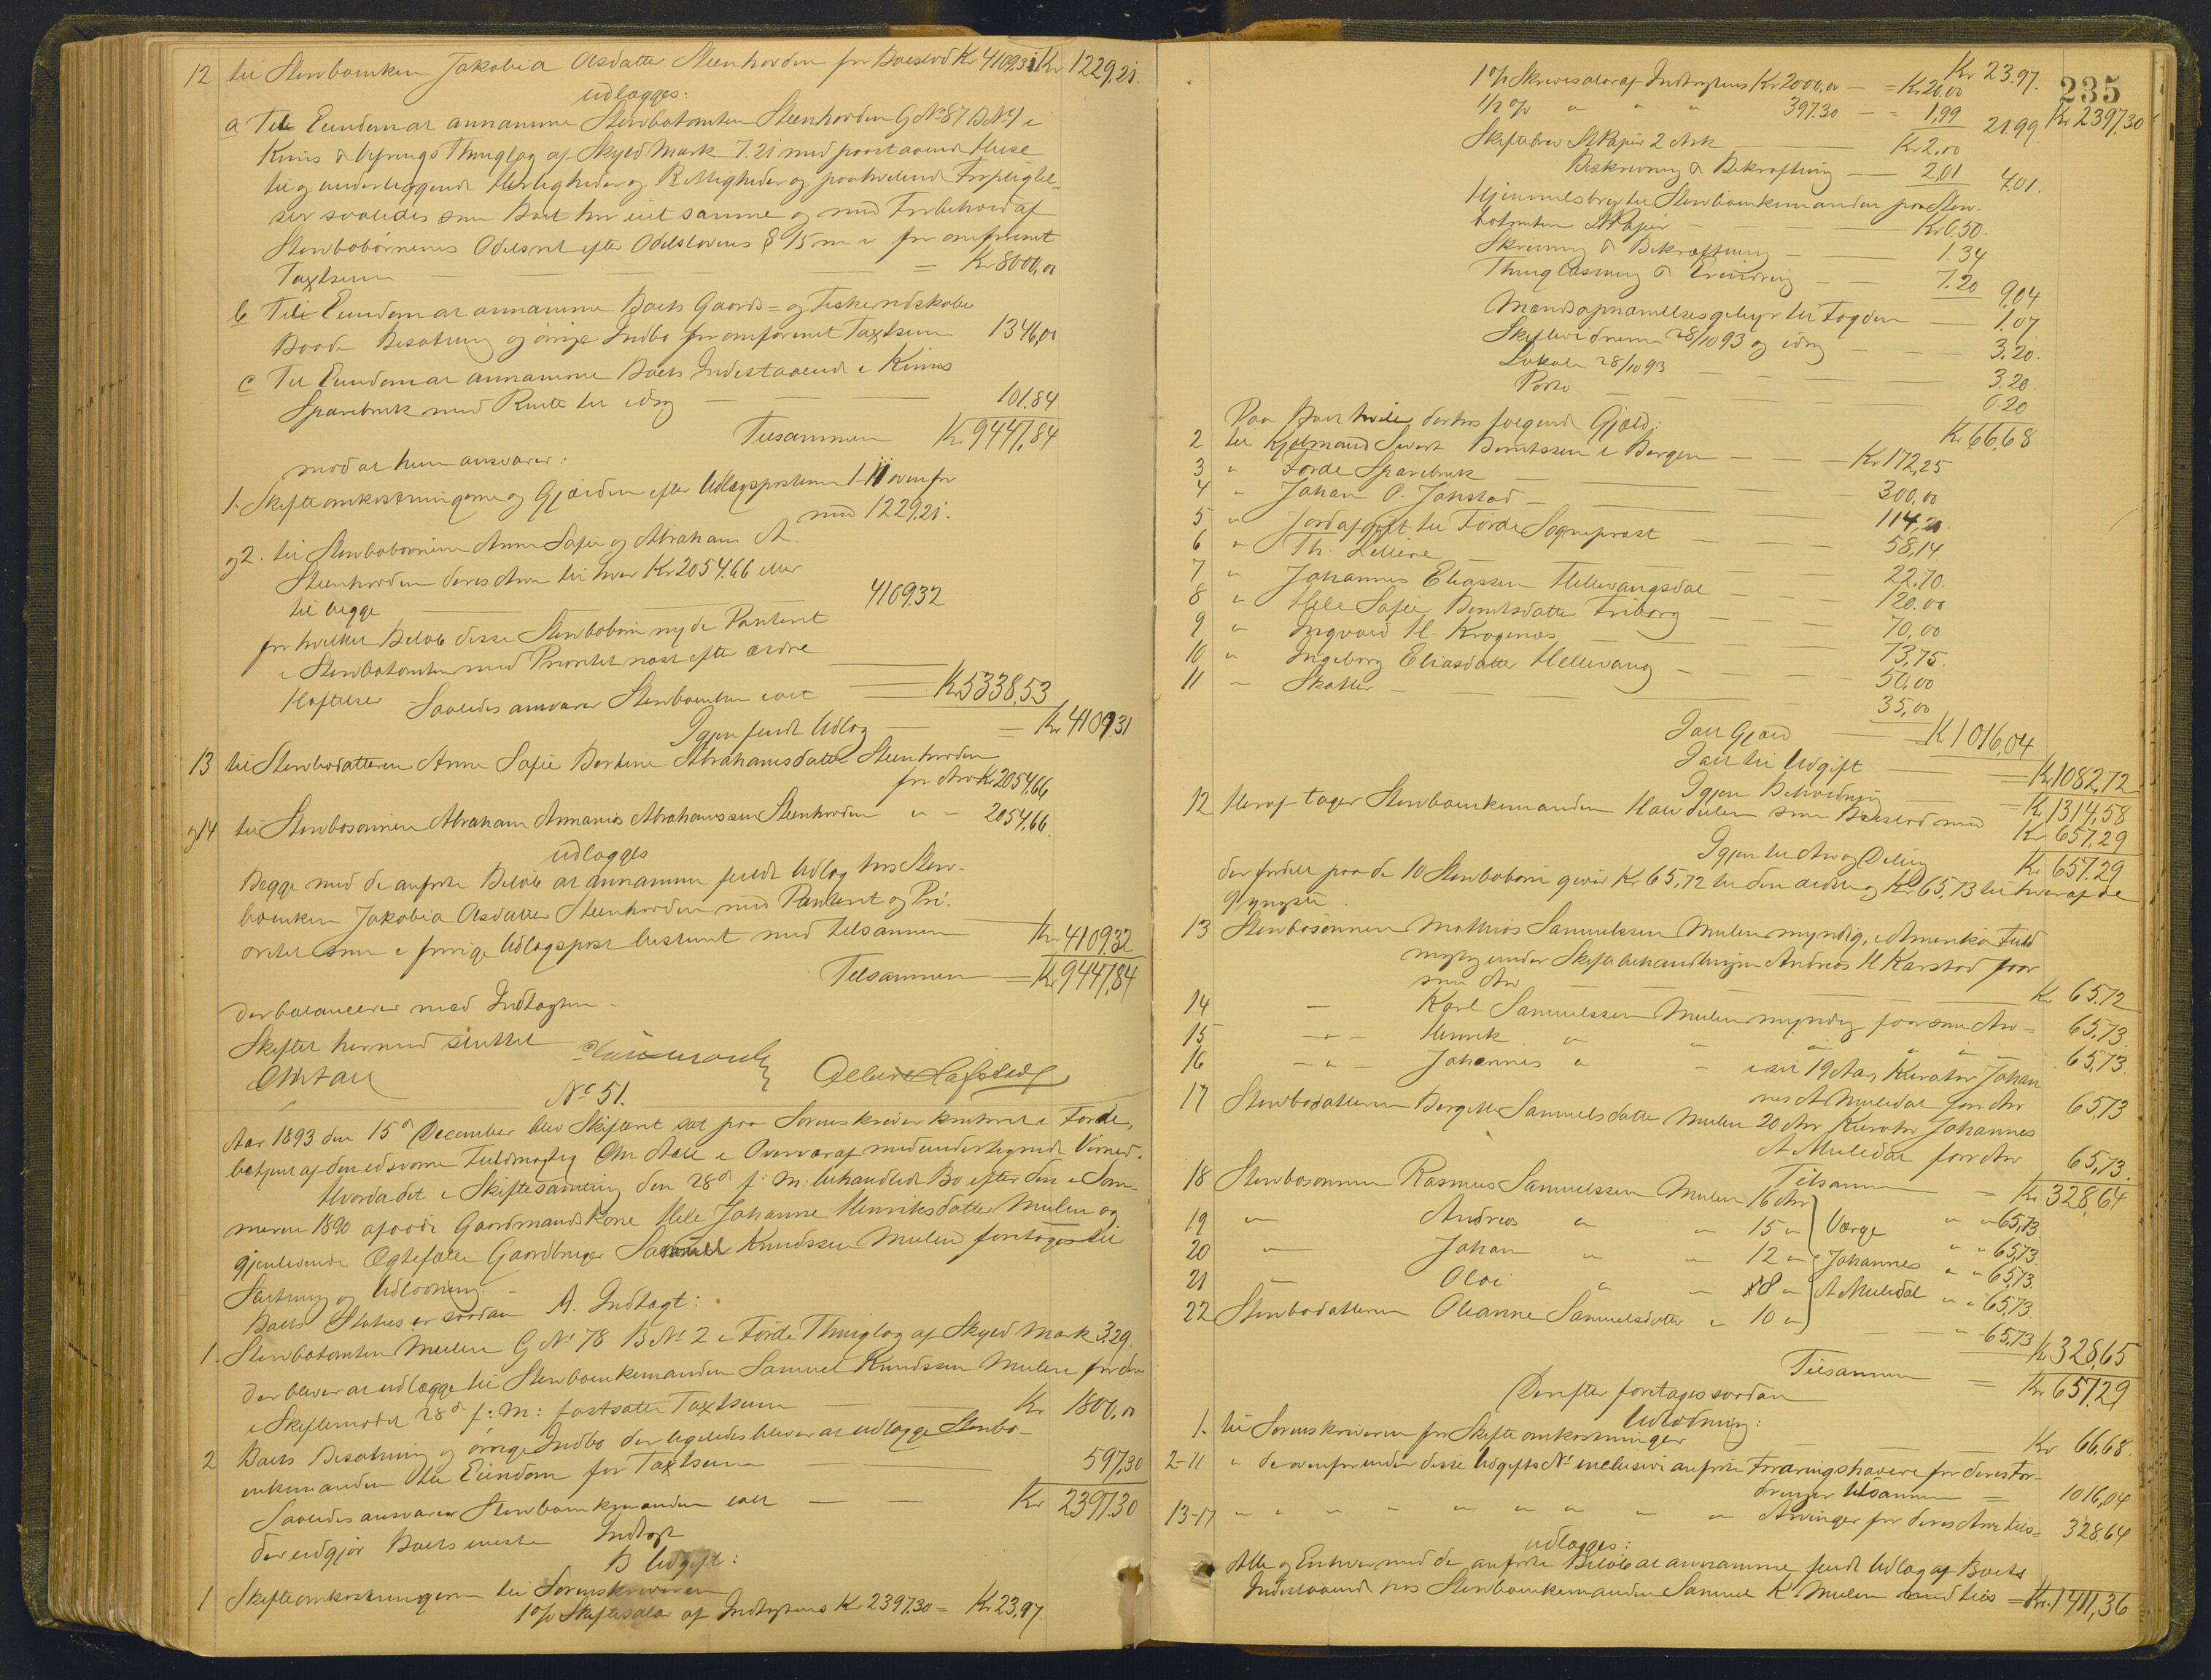 12 til Sterboenken Jakobia Olsdatter Steenhorden for Boeslod Kr 4109.31 Kr 1229,21.
udlægges:
a Til Eiendom at annamme Sterbotomten Steenhorden G No 87 B No 1 i
Kinns & Thinglag af Skyld Mark 7.21 med paastaaende Huse
til og underliggende Herligheder og Rettigheder og paahvilende Forpligtel-
ser saaledes som Boet har eiet samme og med Forbehold af
Sterbobørnenes Odelsret efter Odelslovens § 15 for anførent
Taxtsum — = Kr 8000,00
b Til Eiendom at annamme Boets Gaards= og Fiskeredskabe
Baade Besætning og øvrige Indbo for anførent Taxtsum 1346,00
c Til Eiendom at annamme Boets Indestaaende i Kinns
Sparebank med Renter til idag — 101.84
Tilsammen Kr 9447,84
mod at hun ansvarer:
1. Skifteomkostningerne og Gjælden efter Udlægsposterne 1-11 ovenfor
med 1229,21.
og 2. til Sterbobørnene Anne Sofie og Abraham A.
Steenhorden deres Arv til hver Kr 2054.66 eller
til begge — 4109.32
for hvilket Beløb disse Sterbobørn nyde Panteret
i Sterbotomten med Prioritet næst efter ældre
Hæftelser
Saaledes ansvarer Sterboenken ialt — Kr 5338,53
Igjen fuldt Udlæg — = Kr 4109.31
13 til Sterbodatteren Anne Sofie Bertine Abrahamsdatter Steenhorden
for Arv Kr 2054.66
og 14 til Sterbosønnen Abraham Annanias Abrahamssen Steenhorden " - 2054,66.
udlægges
Begge med de anførte Beløb at annamme fuldt Udlæg hos Ster-
boenken Jakobia Olsdatter Steenhorden med Panteret og Pri-
oritet som i forrige Udlægspost bestemt med tilsammen Kr 4109.32
Tilsammen = Kr 9447,84
der balancerer med Indtægten.
Skiftet hermed sluttet
Chr Aall
No 51.
Aar 1893 den 15de December blev Skifteret sat paa Sorenskriverkontoret i Førde,
betjent af den edsvorne Fuldmægtig Chr Aall i Overvær af medundertegnede Vidner.
Hvorda det i Skiftesamling den 28de f: M: behandlede Bo efter den i Som-
meren 1890 afdøde Gaardmandskone Hele Johanne Henriksdatter Mulen og
gjenlevende Ægtefælle Gaardbruger Samuel Knudssen Mulen foretages til
Slutning og Udlodning.
Boets Status er saadan A. Indtægt:
1. Sterbotomten Mulen G No 78 B No 2 i Førde Thinglag af Skyld Mark 3.29.
der bliver at udlægge til Sterboenkemanden Samuel Knudssen Mulen for den
i Skiftemødet 28de f: M: fastsatte Taxtsum — Kr 1800,00
2 Boets Besætning og øvrige Indbo der ligeledes bliver at udlægge Sterbo-
enkemanden til Eiendom for Taxtsum — 597,30
Saaledes ansvarer Sterboenkemanden ialt — — Kr 2397.30
der udgjør Boets eneste Indtægt
B Udgift:
1 Skifteomkostningerne til Sorenskriveren
1 % Skiftesalær af Indtægtens Kr 2397.30 = Kr 23,97.
235
Kr 23.97. Kr 2397.30
1 % Skriversalær af Indtægtens Kr 2000,00 — = Kr 20.00
1/2 % " " " 397.30 — = 1,99 21.99
Skiftebrev St Papir 2 Ark — Kr 2,00
Beskrivning & Bekræftning — 2,01 4,01.
Hjemmelsbrev til Sterboenkemanden paa Ster-
botomten St Papir — Kr 0.50.
Skrivning & Bekræftning — 1.34
Thinglæsning & Erindring — 7.20 9,04
Mandsopnævnelsesgebyr til Fogden — 1,07
Skiftevidnerne 28/10 93 og idag — 3.20.
Lokale 28/10 93 — 3.20.
Porto — 0.20
Kr 66,68
Paa Boet hviler derhos følgende Gjæld:
2 til Kjøbmand Sivert Berntssen i Bergen — Kr 172,25
3 " Førde Sparebank — 300,00
4 " Johan O. Jonstad — 114,20.
5 " Jordafgift til Førde Sogneprest — 58,14
6 " Th. — 22.70.
7 " Johannes Eliassen Hellevangsdal — 120.00
8 " Hele Sofie Berntsdatter Friborg — 70,00
9 " Ingvald H. Krogenæs — 73,75.
10 " Ingeborg Eliasdatter Hellevang — 50,00
11 " Skatter — 35,00
Ialt Gjæld — Kr 1016,04
Ialt til Udgift — = Kr 1082,72
Igjen Beholdning — = Kr 1314,58
12 Heraf tager Sterboenkemanden Halvdelen som Boeslod med Kr 657,29
Igjen til Arv og Deling Kr 657.29
der fordelt paa de 10 Sterbobørn giver Kr 65,72 til den ældste og Kr 65,73 til hver af de
9 yngste.
13 Sterbosønnen Mathias Samuelssen Mulen myndig, i Amerika Fuld-
mægtig under Skiftebehandlingen Andreas H Karstad faar
sin Arv — Kr 65.72
14 — Karl Samuelssen Mulen myndig faar sin Arv = 65,73.
15 — " — Henrik " " " " " " 65,73.
16 — " — Johannes " " ialt 19 Aar, Kurator Johan-
nes A Muledal for Arv 65,73
17 Sterbodatteren Bergitte Samuelsdatter Mulen 20 Aar Kurator Johannes
A Muledal for Arv 65,73.
Tilsammen = Kr 328,64
18 Sterbosønnen Rasmus Samuelssen Mulen 16 Aar " " 65,73.
19 " Andreas " " 15 " Værge " " 65,73.
20 " Johan " " 12 " Johannes " " 65,73.
21 " Olai " " 8 " A Muledal " " 65,73.
22 Sterbodatteren Oleanne Samuelsdatter " 10 " — " 65,73 Kr 328,65
Tilsammen = Kr 657,29
Derefter foretages saadan
Udlodning:
1. til Sorenskriveren for Skifteomkostninger — Kr 66,68.
2-11 " de ovenfor under disse Udgifts No inclusive anførte Fordringshavere for deres For-
dringer tilsammen = 1016,04
13-17 " " " " " " " " Arvinger for deres Arv tils= 328,64
udlægges:
Alle og Enhver med de anførte Beløb at annamme fuldt Udlæg af Boets
Indestaaende hos Sterboenkemanden Samuel K Mulen med tils = Kr. 1411,36